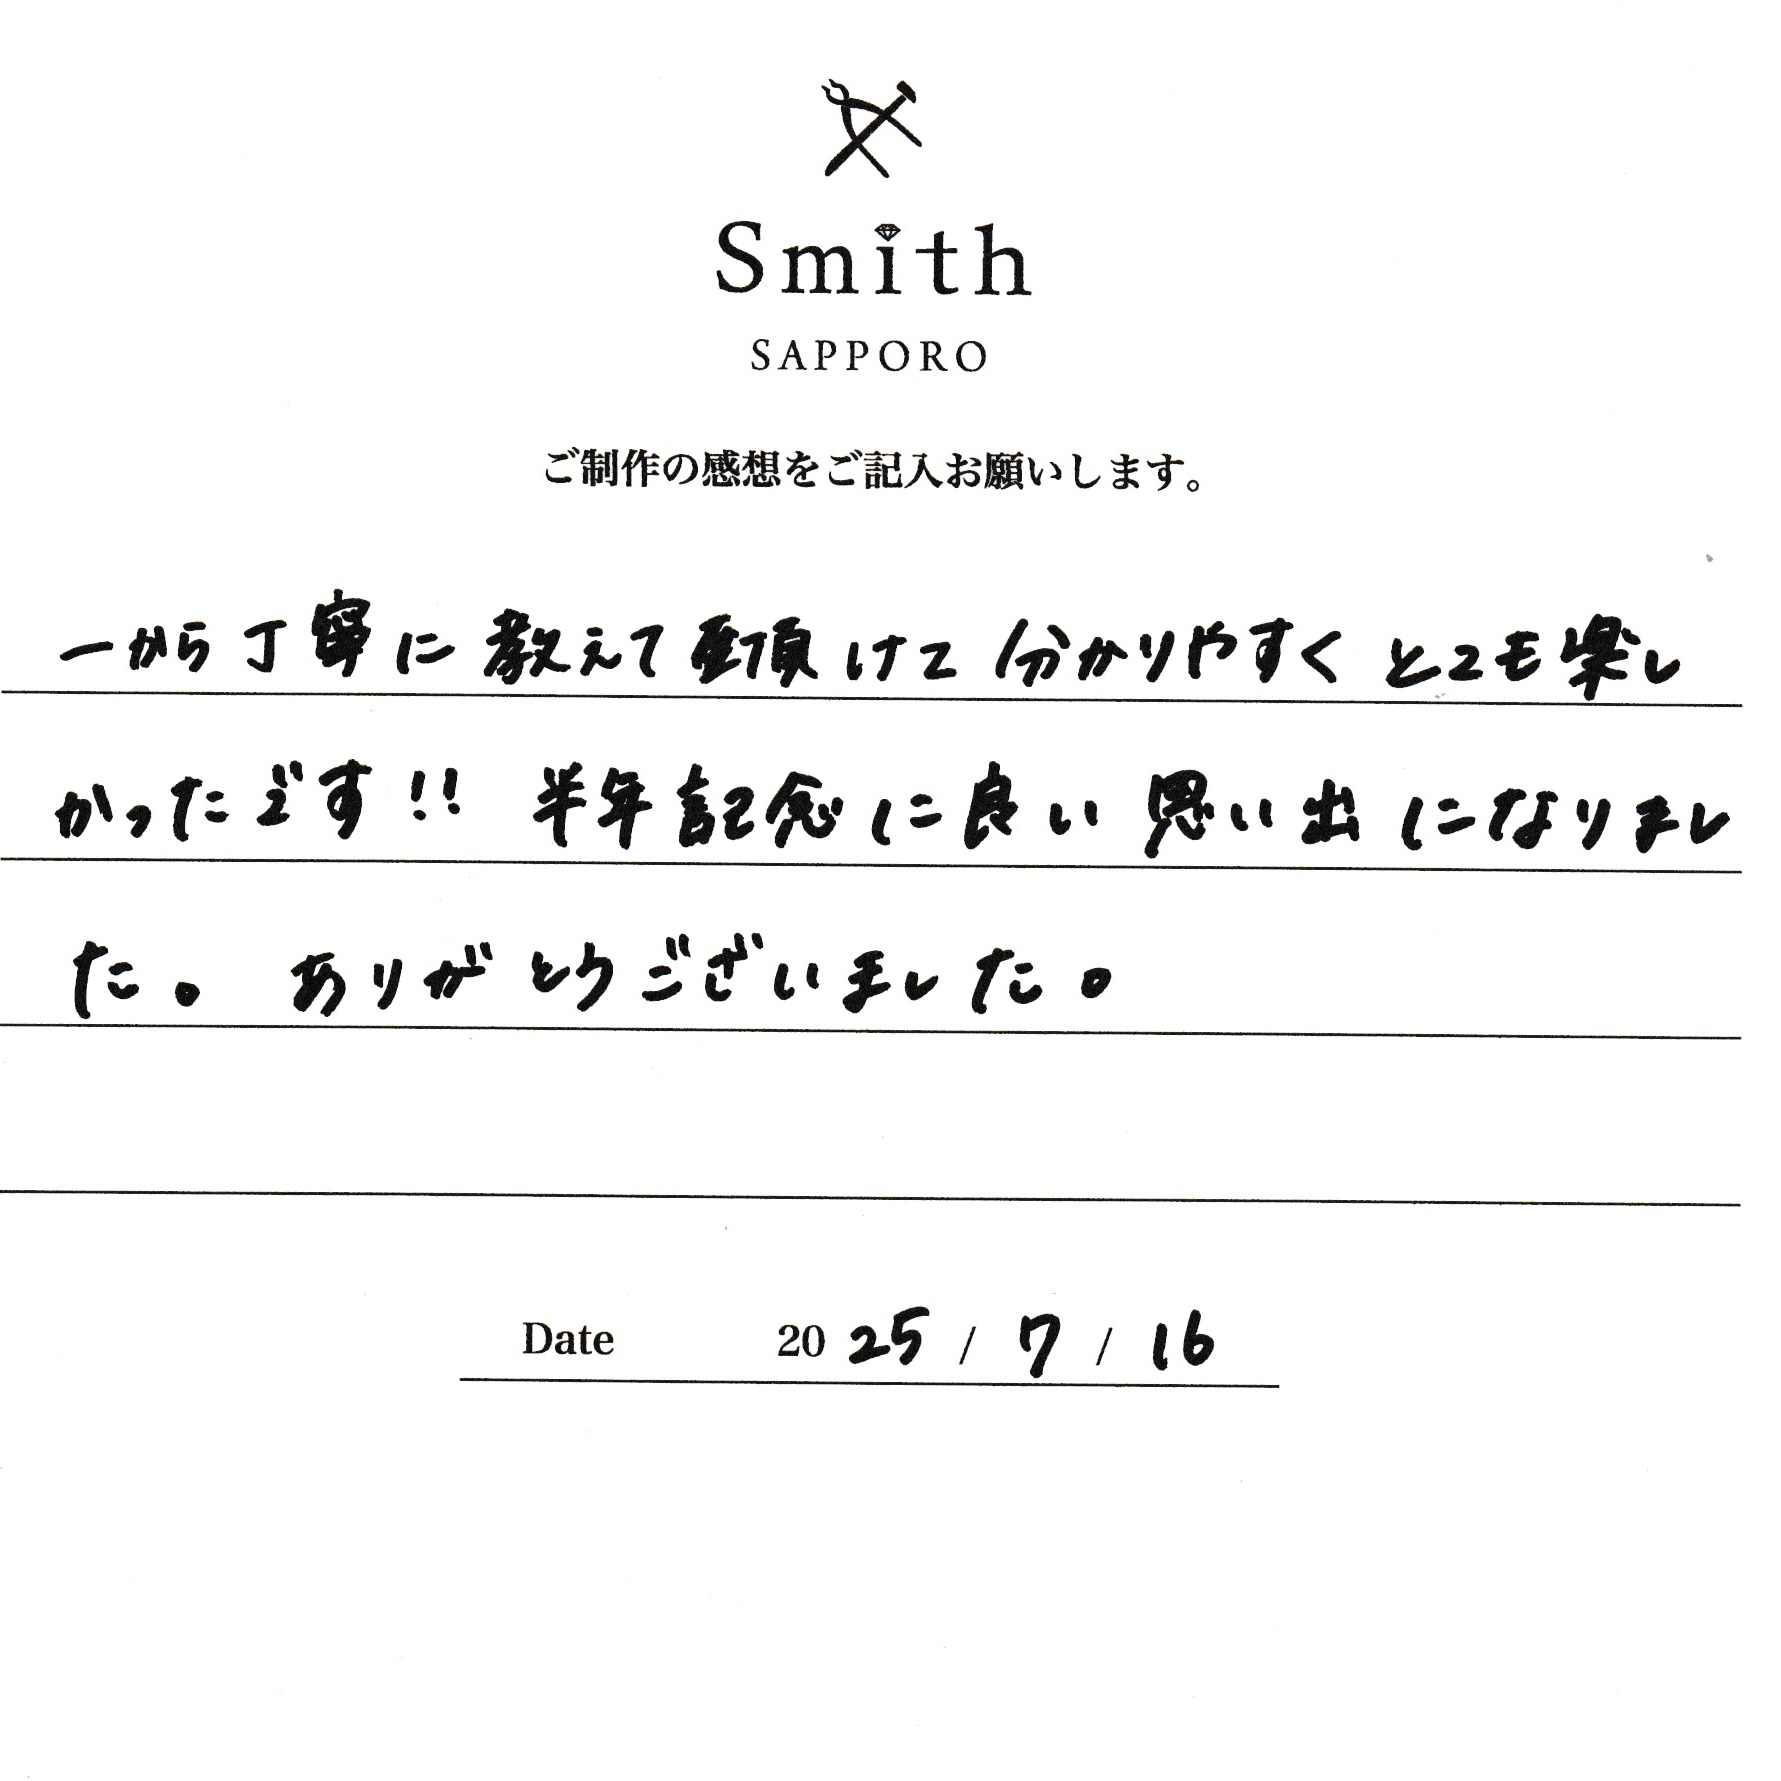 Smith
SAPPORO
ご制作の感想をご記入お願いします。
一から丁寧に教えて頂けて分かりやすくとても楽し
かったです!! 半年記念に良い思い出になりまし
た。ありがとうございました。
Date 2025 / 7 / 16